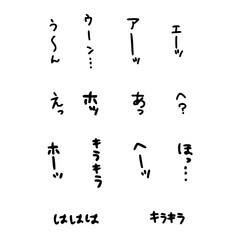 う〜ん
ウーン…
アーッ
エーッ
えっ
ホッ
あっ
へ?
ホーッ
キラキラ
へーッ
ほっ…
ははは
キラキラ